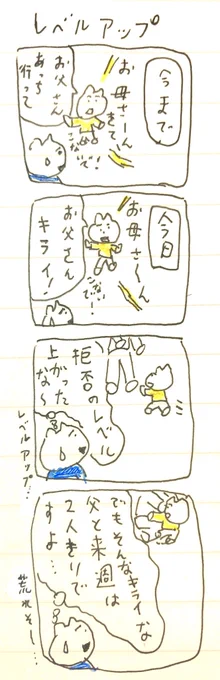 レベルアップ
今まで
お母さ〜ん
こないで!
お父さん
あっち
行って
今日
お母さ〜ん
こないで!
お父さん
キライ!
拒否のレベル
上がった
な〜
レベルアップ…
でもそんなキライな
父と来週は
2人きりで
すよ…
荒れそー…